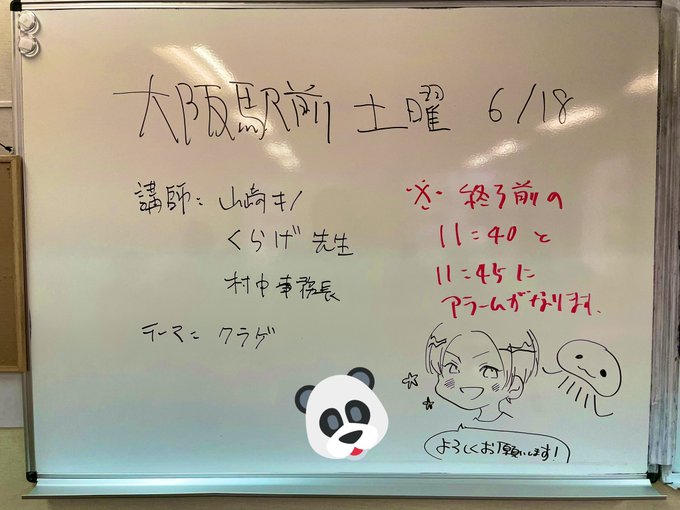 大阪駅前 土曜 6/18
講師: 山崎キノ
くらげ先生
村中事務長
テーマ: クラゲ
※ 終了前の
11:40 と
11:45 に
アラームがなります.
よろしくお願いします!